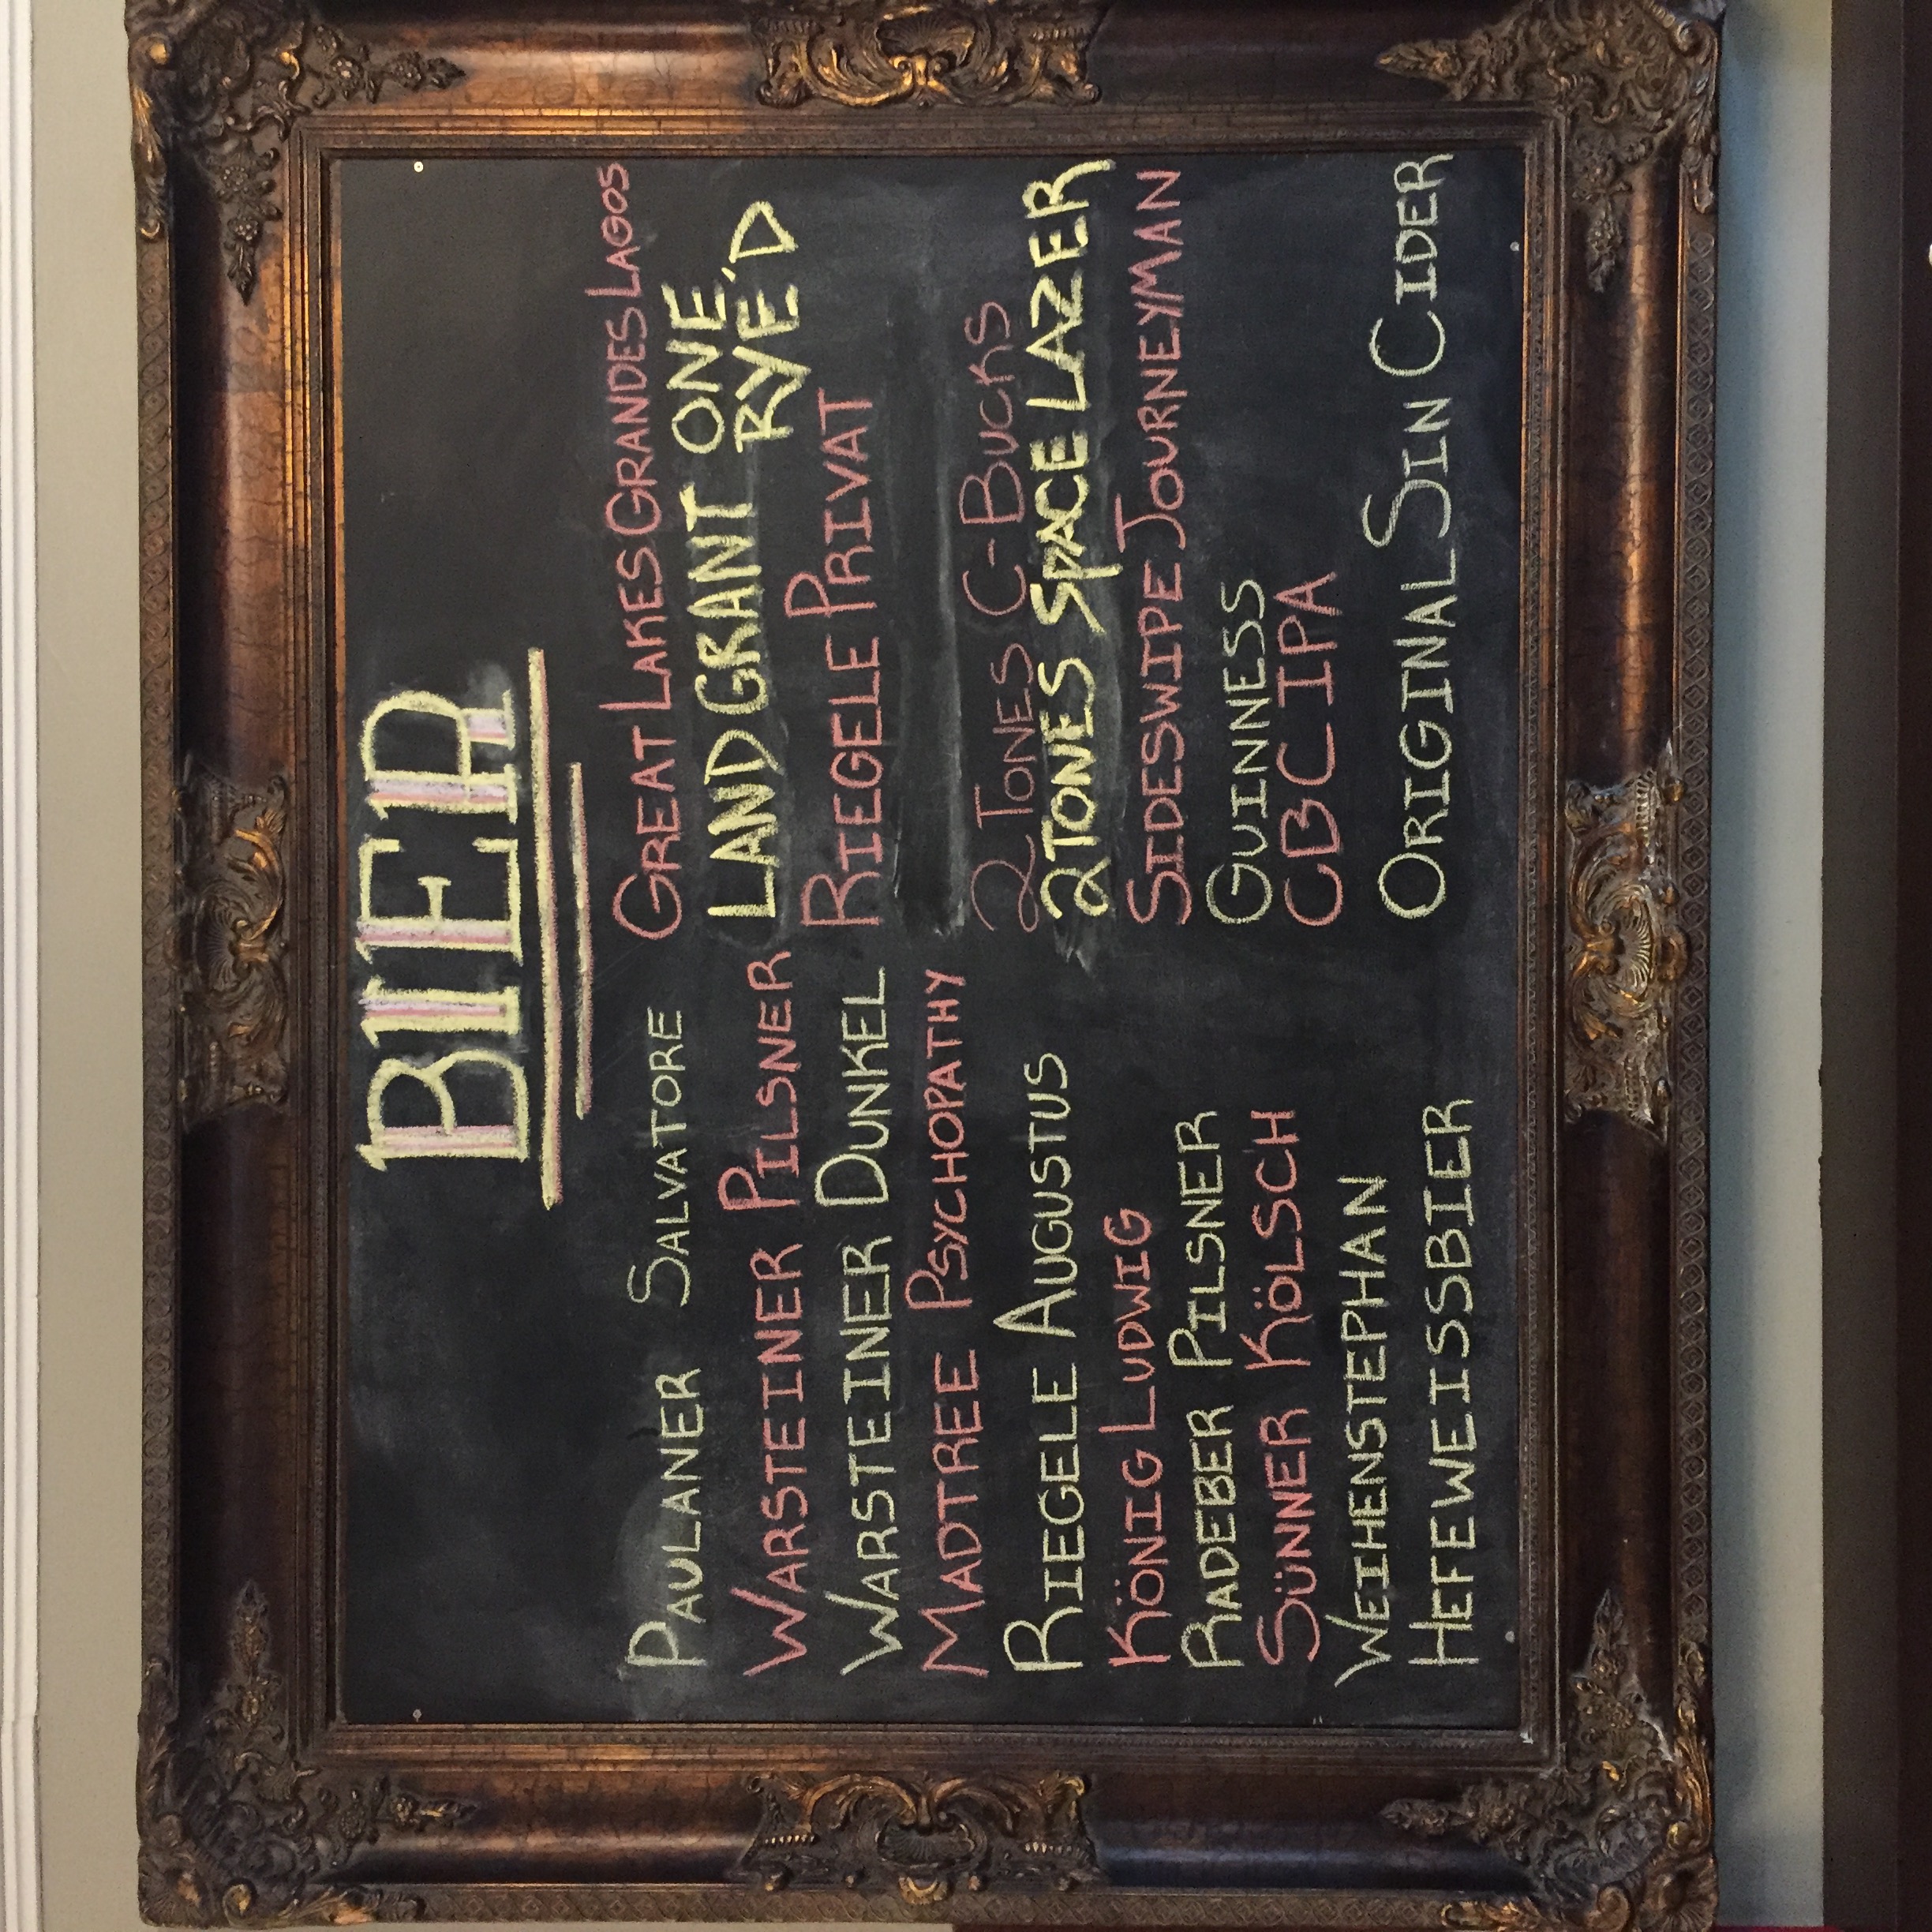 BIER
PAULANER SALVATORE
WARSTEINER PILSNER
WARSTEINER DUNKEL
MADTREE PSYCHOPATHY
RIEGELE AUGUSTUS
KÖNIG LUDWIG
RADEBER PILSNER
SÜNNER KÖLSCH
WEIHENSTEPHAN
HEFEWEISSBIER
GREAT LAKES GRANDES LAGOS
LAND GRANT ONE
RYE'D
RIEGELE PRIVAT
2 TONES C-BUCKS
2 TONES SPACE LAZER
SIDESWIPE JOURNEYMAN
GUINNESS
CBC IPA
ORIGINAL SIN CIDER